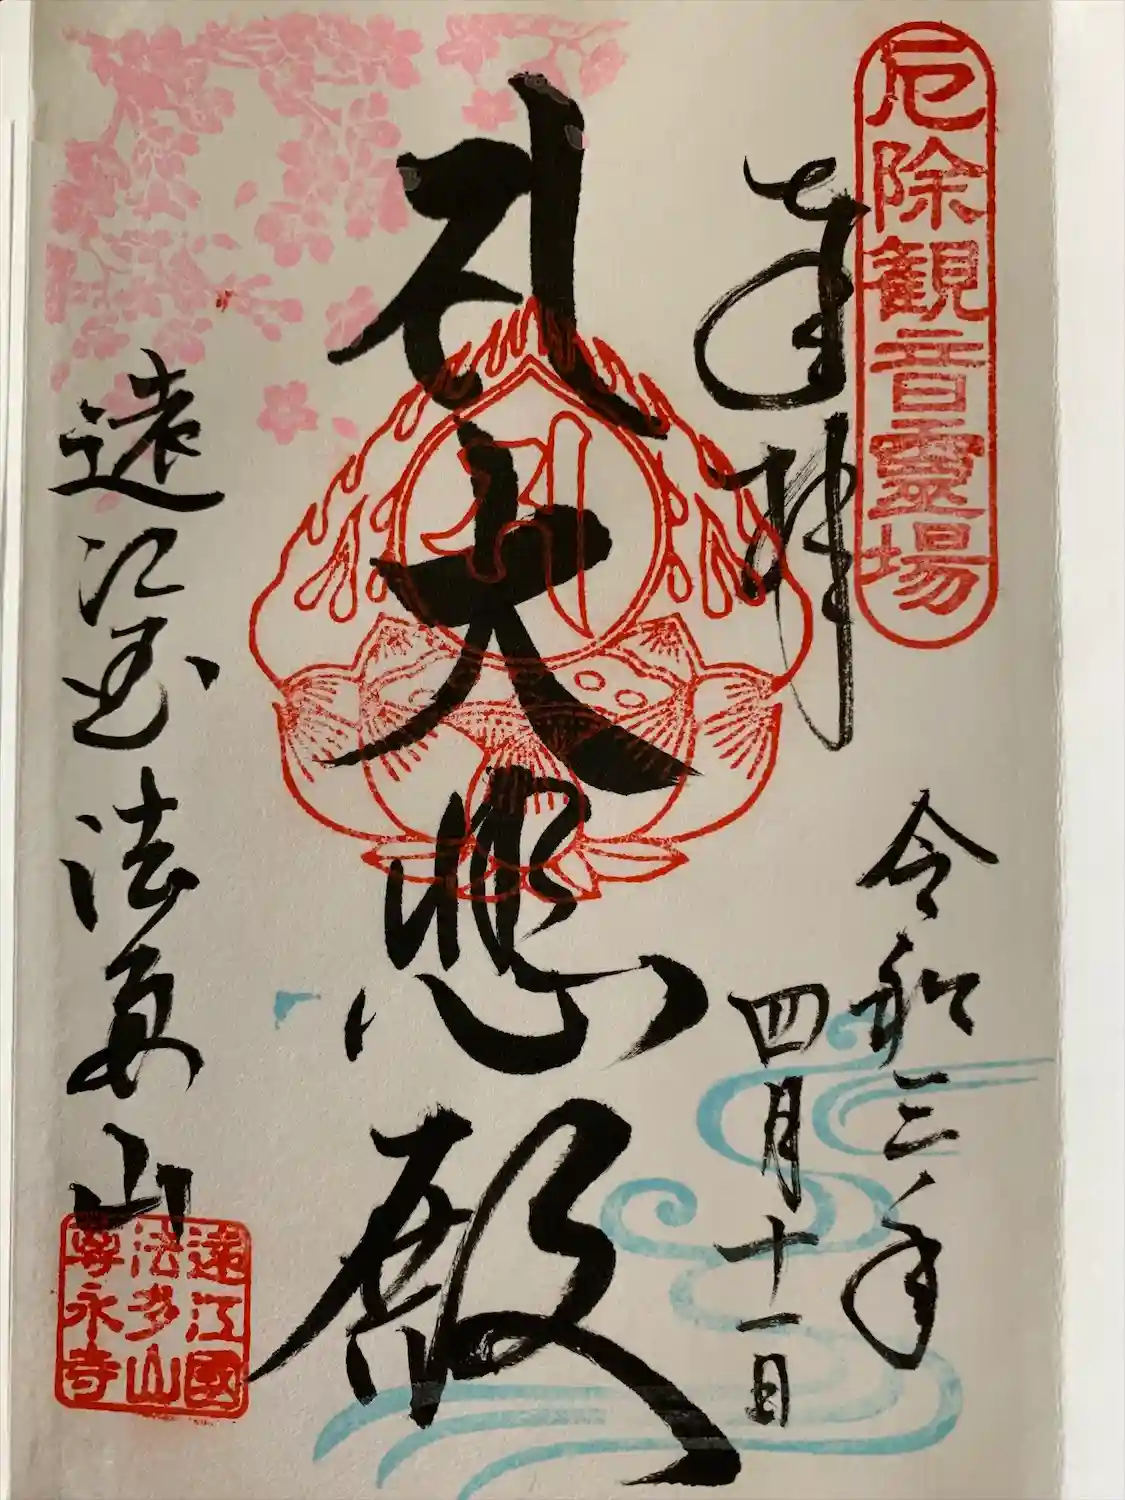 厄除観音霊場
奉拝
令和三年
四月十一日
𑖭大悲殿
𑖭
遠江国 法多山
遠江國
法多山
尊永寺